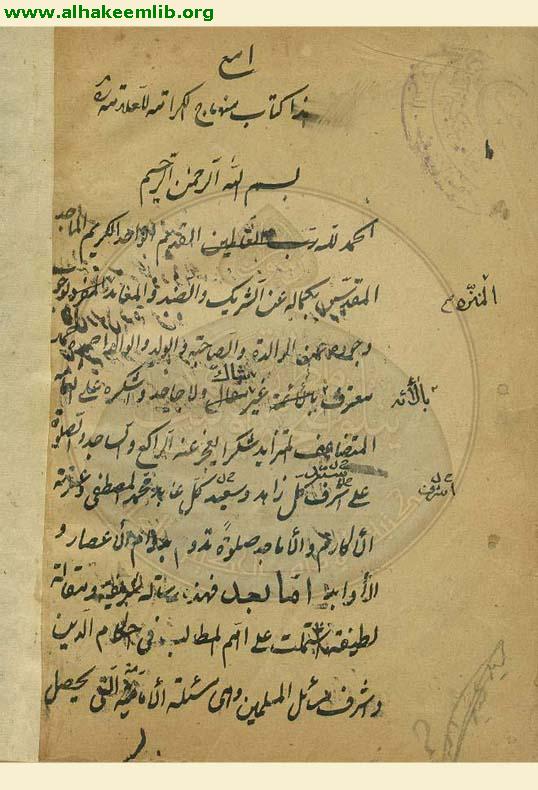 www.alhakeemlib.org
هذا كتاب منهاج الكرامة للعلامة
بسم الله الرحمن الرحيم
الحمد لله رب العالمين القديم الواحد الكريم الماجد
المقدس بكماله عن الشريك والضد والمعاند المنزه
وجوده عن الوالدة والصاحبة والولد والوالد احمده حمد
معترف بآلائه غير شاك ولا جاحد واشكره على
المتضاعف المتزايد شكرا يعجز عنه الراكع والساجد والصلوة
على اشرف كل زاهد وسعيد كل عابد محمد المصطفى وعترته
الأكارم والأماجد صلوة تدوم بدوام الأعصار و
الأوابد اما بعد فهذه رسالة شريفة ومقالة
لطيفة اشتملت على اهم المطالب في احكام الدين
واشرف مسائل المسلمين وهى مسئلة الأمامة التى يحصل
المنزه
بآلائه
اشرف